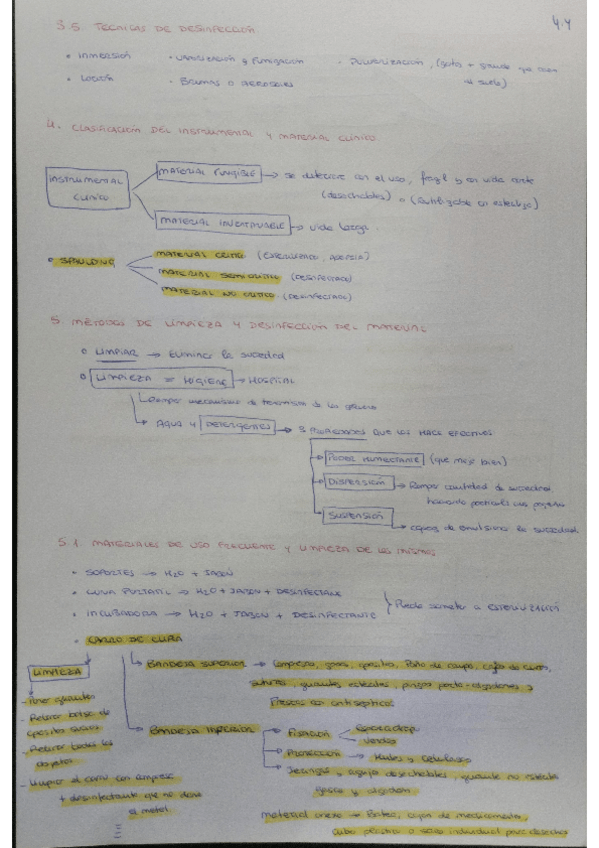 4.4
3.5 TÉCNICAS DE DESINFECCIÓN
• INMERSIÓN • VAPORIZACIÓN y FUMIGACIÓN • PULVERIZACIÓN, (gotas + grande que caen
• LOCIÓN • BRUMAS o AEROSOLES al suelo)
4. CLASIFICACIÓN DEL INSTRUMENTAL Y MATERIAL CLÍNICO
INSTRUMENTAL CLÍNICO
MATERIAL FUNGIBLE → se deteriora con el uso, frágil y en vida corta
(desechables) o (Reutilizable en esteriliza)
MATERIAL INVENTARIABLE → vida larga.
• SPAULDING
MATERIAL CRÍTICO (ESTERILIZADO, ASEPSIA)
MATERIAL SEMICRÍTICO (DESINFECTADO)
MATERIAL NO CRÍTICO (DESINFECTADO)
5. MÉTODOS DE LIMPIEZA Y DESINFECCIÓN DEL MATERIAL
• LIMPIAR → ELIMINAR la suciedad
• LIMPIEZA = HIGIENE → HOSPITAL
Romper mecanismos de transmisión de los gérmenes
→ AGUA Y DETERGENTES → 3 PROPIEDADES QUE LOS HACE EFECTIVOS
PODER HUMECTANTE (que moje bien)
DISPERSIÓN → Romper cantidad de suciedad, haciendo partículas más pequeñas
SUSPENSIÓN → capaz de emulsionar la suciedad
5.1. MATERIALES DE USO FRECUENTE Y LIMPIEZA DE LOS MISMOS
• SOPORTES → H2O + JABÓN
• CUNA PORTÁTIL → H2O + JABÓN + DESINFECTANTE
• INCUBADORA → H2O + JABÓN + DESINFECTANTE } Puede someter a ESTERILIZACIÓN
• CARRO DE CURA
LIMPIEZA
- Poner guantes
- Retirar bolsa de depósito sucios
- Retirar todos los objetos
- Limpiar el carro con compresa
+ desinfectante que no dañe
el metal
→ BANDEJA SUPERIOR → Compresas, gasas, apósitos, Paño de campo, cajas de curas,
suturas, guantes estériles, pinzas porta-algodones y
Frascos con antisépticos
→ BANDEJA INFERIOR
→ FIJACIÓN
Esparadrapo
Vendas
→ PROTECCIÓN → Hules y Celulosa
→ Jeringas y agujas desechables, guante no estéril
gasas y algodón
material anexo → Batea, copas de medicamentos,
cubo plástico o saco individual para desechos